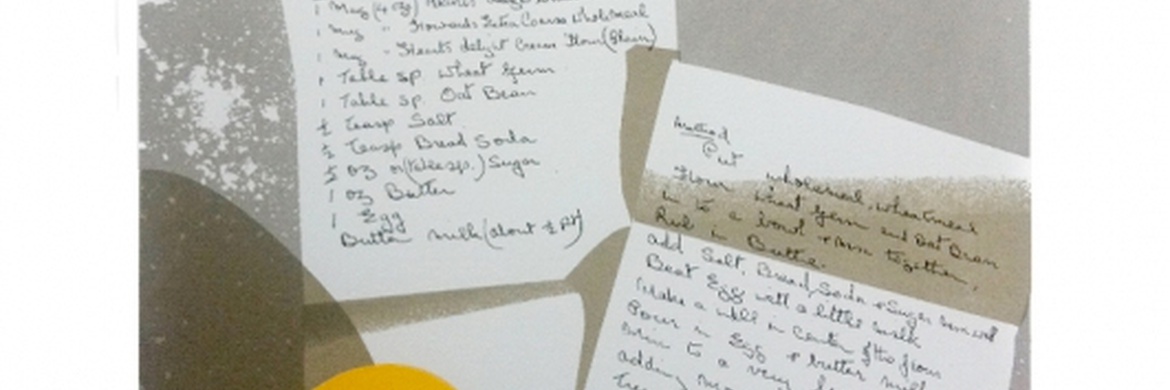 1 Mug (4 oz)
1 mug " Howards Extra Coarse Wholemeal
1 mug " Hearts delight Cream Flour (Plain)
1 Table sp. Wheat Germ
1 Table sp. Oat Bran
½ Teasp Salt
½ Teasp Bread Soda
½ oz or (tablesp.) Sugar
1 oz Butter
1 Egg
Butter milk (about ½ pt)
Method
Put wholemeal, wheatmeal
Flour wheat germ and Oat Bran
in to a bowl + mix together,
Rub in Butter.
add Salt, Bread Soda + Sugar mix well
Beat Egg with a little milk
Make a well in center of the flour
Pour in Egg + butter milk
mix to a very
adding